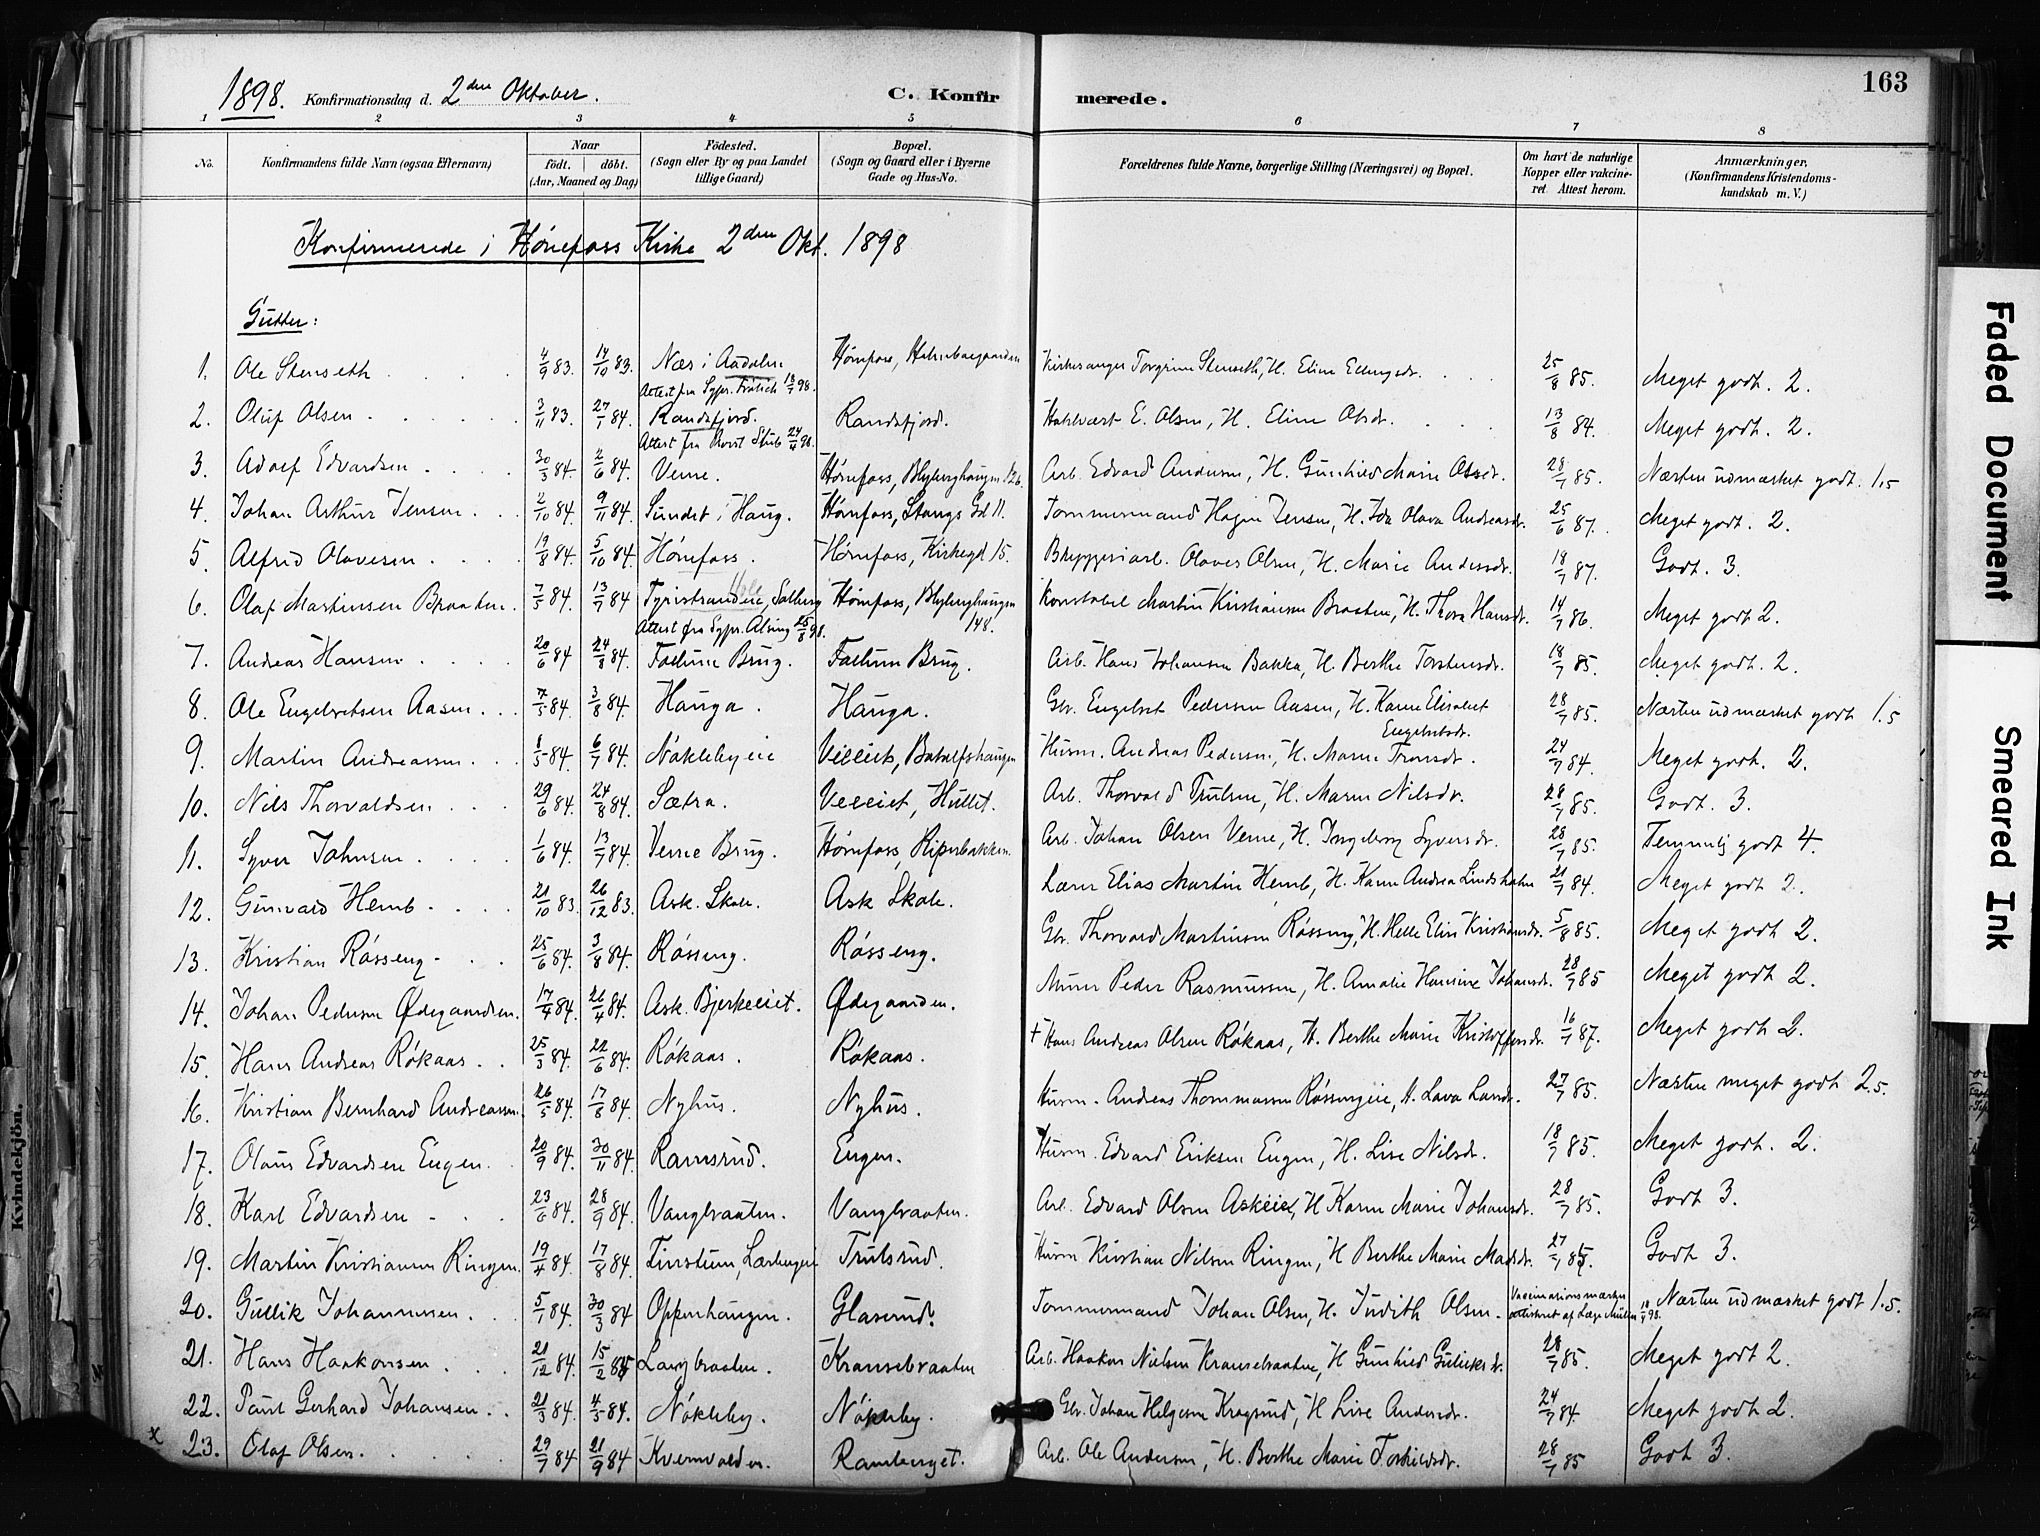 163
1898. Konfirmationsdag d. 2den Oktober. C. Konfirmerede.
1 2 3 4 5 6 7 8
No. Konfirmandens fulde Navn (ogsaa Efternavn) Naar födt. döbt. (Aar, Maaned og Dag) Födested. (Sogn eller By og paa Landet tillige Gaard) Bopæl. (Sogn og Gaard eller i Byerne Gade og Hus-No. Forældrenes fulde Navne, borgerlige Stilling (Næringsvei) og Bopæl. Om havt de naturlige Kopper eller vakcineret. Attest herom. Anmærkninger. (Konfirmandens Kristendomskundskab m. V.)
Konfirmerede i Hønefoss Kirke 2den Okt. 1898
Gutter:
1. Ole Stenseth 4/9 83. 14/10 83. Næs i Aadalen Attest fra Sgpr. Frölich 18/7 98. Hønefoss, Kirkesanger Torgrim Stenseth, H. Eline Ellingsdr. 25/8 85. Meget godt. 2.
2. Oluf Olsen 3/11 83. 27/1 84. Randsfjord. Attest fra Provst Stub 24/4 98. Randsfjord. E. Olsen, H. Eline Olsdr. 13/8 84. Meget godt. 2.
3. Adolf Edvardsen 30/3 84. 2/6 84. Verne. Hønefoss, Blyberghaugen 126. Arb. Edvard Andersen, H. Gunhild Marie Olsdr. 28/7 85. Næsten udmærket godt. 1.5
4. Johan Arthur Jensen 2/10 84. 9/11 84. Sundet i Haug. Hønefoss, Stangs Gd 11. Tømmermand Hagen Jensen, H. Ida Olava Andreasdr. 25/6 87. Meget godt. 2.
5. Alfred Olavesen 19/8 84. 5/10 84. Hønefoss. Hønefoss, Kirkegd 15. Bryggeriarb. Olaves Olsen, H. Marie Andersdr. 18/7 87. Godt. 3.
6. Olaf Martinsen Braaten. 7/5 84. 13/7 84 Hole Tyristranden, Solberg Attest fra Sgpr. Alsing 25/8 98. Hønefoss, Blyberghaugen 148. Konstabel Martin Kristiansen Braaten, H. Thora Hansdr. 14/7 86. Meget godt 2.
7. Andreas Hansen 20/6 84 24/8 84. Follum Brug. Follum Brug. Arb. Hans Johansen Bakka, H. Berthe Torstensdr. 18/7 85. Meget godt. 2.
8. Ole Engebretsen Aasen 7/5 84. 3/8 84. Hauga. Hauga. Gbr. Engebret Pedersen Aasen, H. Karen Elisabet Engebretsdr. 28/7 85. Næsten udmærket godt 1.5
9. Martin Andreassen 1/5 84. 6/7 84. Nökleby eie Veleiet, Husm. Andreas Pedersen, H. Maren Tronsdr. 24/7 84. Meget godt. 2.
10. Nils Thorvaldsen 29/6 84. 24/8 84. Sætra. Veleiet, Hullet. Arb. Thorvald Trulsen, H. Maren Nilsdr. 28/7 85. Godt. 3.
11. Syver Johnsen 1/6 84. 13/7 84. Verne Brug. Hønefoss, Pipenbakken. Arb. Johan Olsen Verne, H. Ingeborg Syversdr. 28/7 85. Temmelig godt 4.
12. Gunvald Hemb 21/10 83. 26/12 83. Ask. Skole. Ask Skole. Lærer Elias Martin Hemb, H. Karen Andrea Lindsholm 21/7 84. Meget godt 2.
13. Kristian Rösseng 25/6 84. 3/8 84. Rösseng. Rösseng. Gbr. Thorvald Martinsen Rösseng, H. Helle Elin Kristiansdr. 5/8 85. Meget godt 2.
14. Johan Pedersen Ødegaarden. 17/4 84. 26/4 84. Ask. Bjerkeeiet. Ødegaarden. Murer Peder Rasmussen, H. Amalie Hansine Johansdr. 28/7 85 Meget godt 2.
15. Hans Andreas Rökaas 25/3 84. 22/6 84. Rökaas. Rökaas. + Hans Andreas Olsen Rökaas, H. Berthe Marie Kristoffersdr. 16/7 87. Meget godt 2.
16. Kristian Bernhard Andreassen. 26/5 84. 17/8 84. Nyhus. Nyhus. Husm. Andreas Thommassen Rössengeie, H. Lava Larsdr. 27/7 85. Næsten meget godt 2.5.
17. Olaus Edvardsen Engen. 20/9 84. 30/11 84. Ramsrud. Engen. Husm. Edvard Eriksen Engen, H. Lise Nilsdr. 18/7 85. Meget godt. 2.
18. Karl Edvardsen 23/6 84. 28/9 84. Vangbraaten. Vangbraaten. Arb. Edvard Olsen Askeie, H Karen Marie Johansdr. 28/7 85. Godt 3.
19. Martin Kristiansen Ringen. 19/4 84. 17/8 84. Finstum, Trulsrud. Husm Kristian Nilsen Ringen, H Berthe Marie Madsdr. 27/7 85. Godt 3.
20. Gullik Johannesen. 5/1 84. 30/3 84 Oppenhaugen. Glasrud. Tømmermand Johan Olsen, H. Judith Olsen. Vaccinationsmærker attesteret af Læge 18/9 98. Næsten udmærket godt 1.5.
21. Hans Haakonsen 21/12 84. 15/2 85 Langbraaten. Kransebraaten Arb. Haakon Nielsen Kransebraaten, H Gunhild Gulliksdr. 28/7 85. Meget godt 2.
22. Paul Gerhard Johansen 21/3 84. 4/5 84. Nökleby. Nökleby. Gbr. Johan Helgesen Kragsrud, H Lise Andersdr. 24/7 84. Meget godt 2.
x 23. Olaf Olsen. 29/7 84 21/9 84 Kvernvolden. Ramberget. Arb. Ole Andersen, H. Berthe Marie Torkildsdr. 28/7 85 Godt 3.
Faded Document
Smeared Ink
Kvindekjön.